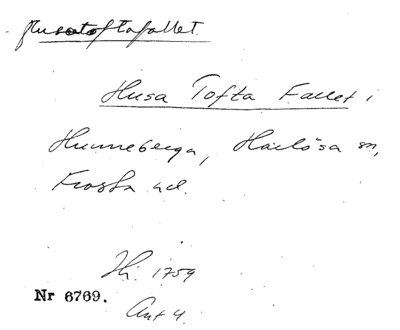 Husatoftafallet.
Husa Tofta Fallet i
Hunneberga, Harlösa sn,
Frosta hd.
Hr. 1759
Nr 6769.
Akt 4.